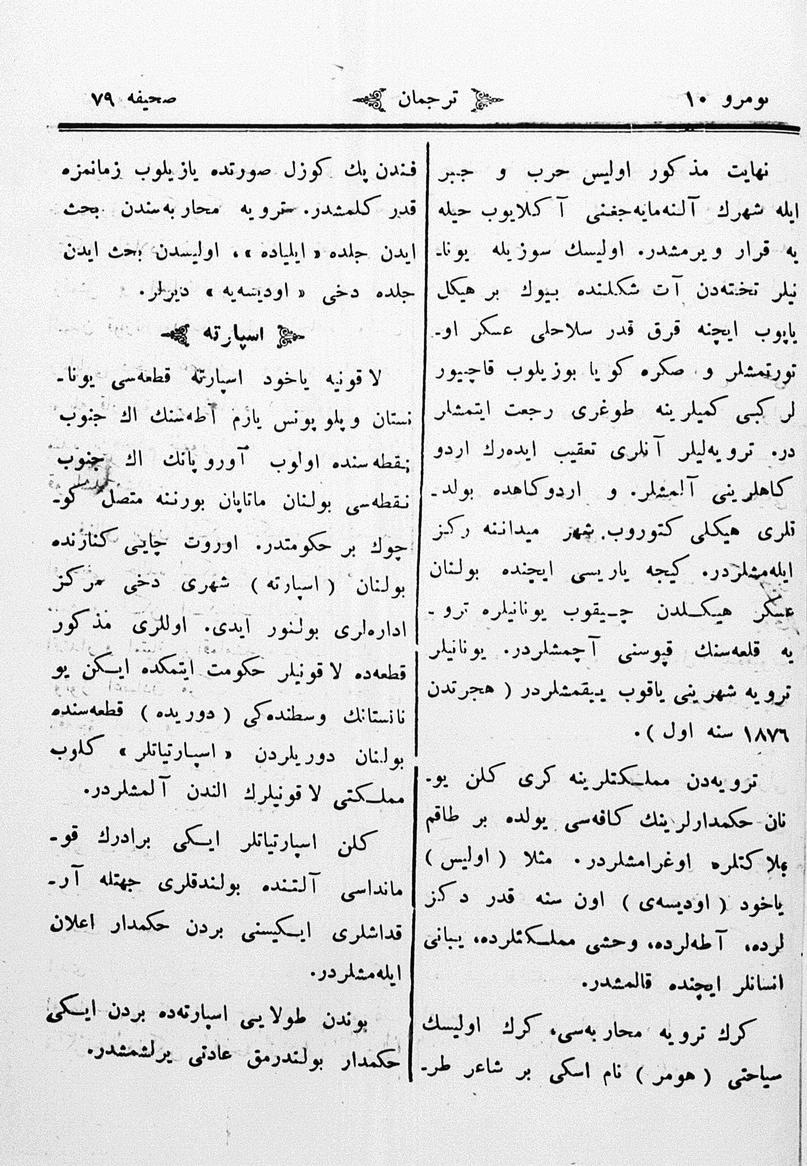 نومرو ١٠
ترجمان
صحیفه ٧٩
نهایت مذكور اولیس حرب و جبر
ایله شهرك آلنه‌مایه‌جغنی آكلایوب حیله
یه قرار ویرمشدر. اولیسك سوزیله یونا-
نیلر تخته‌دن آت شكلنده بیوك بر هیكل
یاپوب ایچنه قرق قدر سلاحلی عسكر او-
تورتمشلر و صكره كویا بوزیلوب قاچیور
لر كبی كمیلرینه طوغری رجعت ایتمشلر
در. ترویه‌لیلر آنلری تعقیب ایده‌رك اردو
كاهلرینی آلمشلر. و اردوكاهده بولد-
قلری هیكلی كتوروب شهر میداننه ركز
ایله‌مشلردر. كیجه یاریسی ایچنده بولنان
عسكر هیكلدن چیقوب یونانیلره ترو-
یه قلعه‌سنك قپوسنی آچمشلردر. یونانیلر
ترویه شهرینی یاقوب ییقمشلردر (هجرتدن
١٨٧٦ سنه اول).
ترویه‌دن مملكتلرینه كری كلن یو-
نان حكمدارلرینك كافه‌سی یولده بر طاقم
بلاكتلره اوغرامشلردر. مثلا (اولیس)
یاخود (اودیسه‌ی) اون سنه قدر دكز
لرده، آطه‌لرده، وحشی مملكتلرده، یبانی
انسانلر ایچنده قالمشدر.
كرك ترویه محاربه‌سی، كرك اولیسك
سیاحتی (هومر) نام اسكی بر شاعر طر-
فندن پك كوزل صورتده یازیلوب زمانمزه
قدر كلمشدر. ترویه محاربه‌سندن بحث
ایدن جلده «ایلیاده»، اولیسدن بحث ایدن
جلده دخی «اودیسه‌یه» دیرلر.
اسپارته
لاقونیه یاخود اسپارته قطعه‌سی یونا-
نستان وپلوپونس یارم آطه‌سنك اك جنوب
نقطه‌سنده اولوب آوروپانك اك جنوب
نقطه‌سی بولنان ماتاپان بورننه متصل كو-
چوك بر حكومتدر. اوروت چایی كنارنده
بولنان (اسپارته) شهری دخی مركز
اداره‌لری بولنور آیدی. اوللری مذكور
قطعه‌ده لاقونیلر حكومت ایتمكده ایكن یو
نانستانك وسطنده‌كی (دوریده) قطعه‌سنده
بولنان دوریلردن «اسپارتیاتلر» كلوب
مملكتی لاقونیلرك الندن آلمشلردر.
كلن اسپارتیاتلر ایكی برادرك قو-
مانداسی آلتنده بولندقلری جهتله آر-
قداشلری ایكیسنی بردن حكمدار اعلان
ایله‌مشلردر.
بوندن طولایی اسپارته‌ده بردن ایكی
حكمدار بولندرمق عادتی یرلشمشدر.